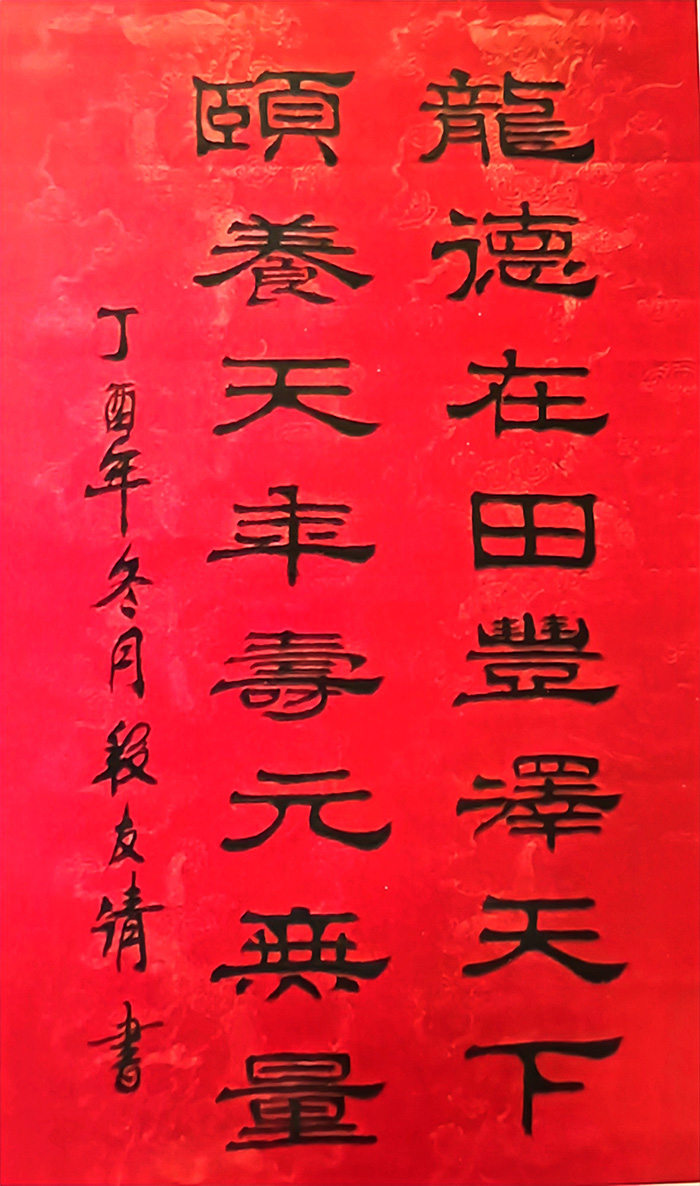 龍德在田豐澤天下
頤養天年壽元無量
丁酉年冬月段友清書